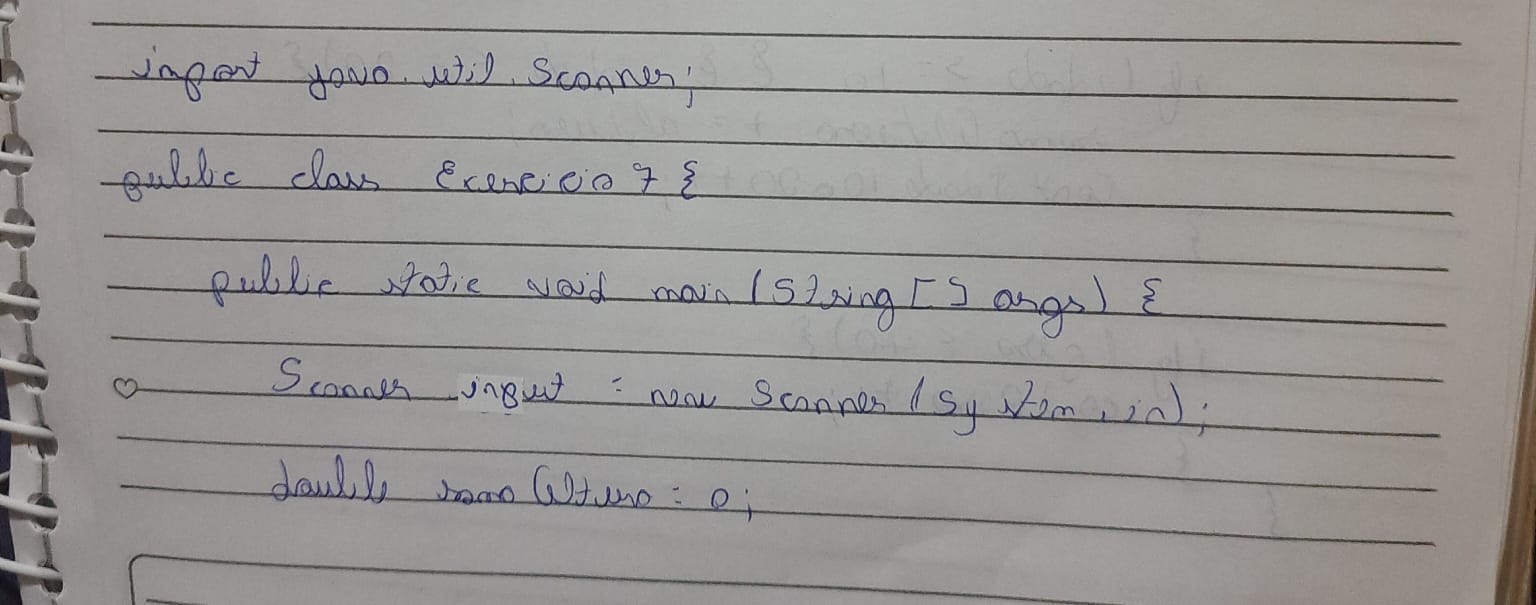 import java.util.Scanner;
public class Exercicio 7 {
public static void main (String [] args) {
Scanner input = new Scanner (System.in);
double soma Altura = 0;